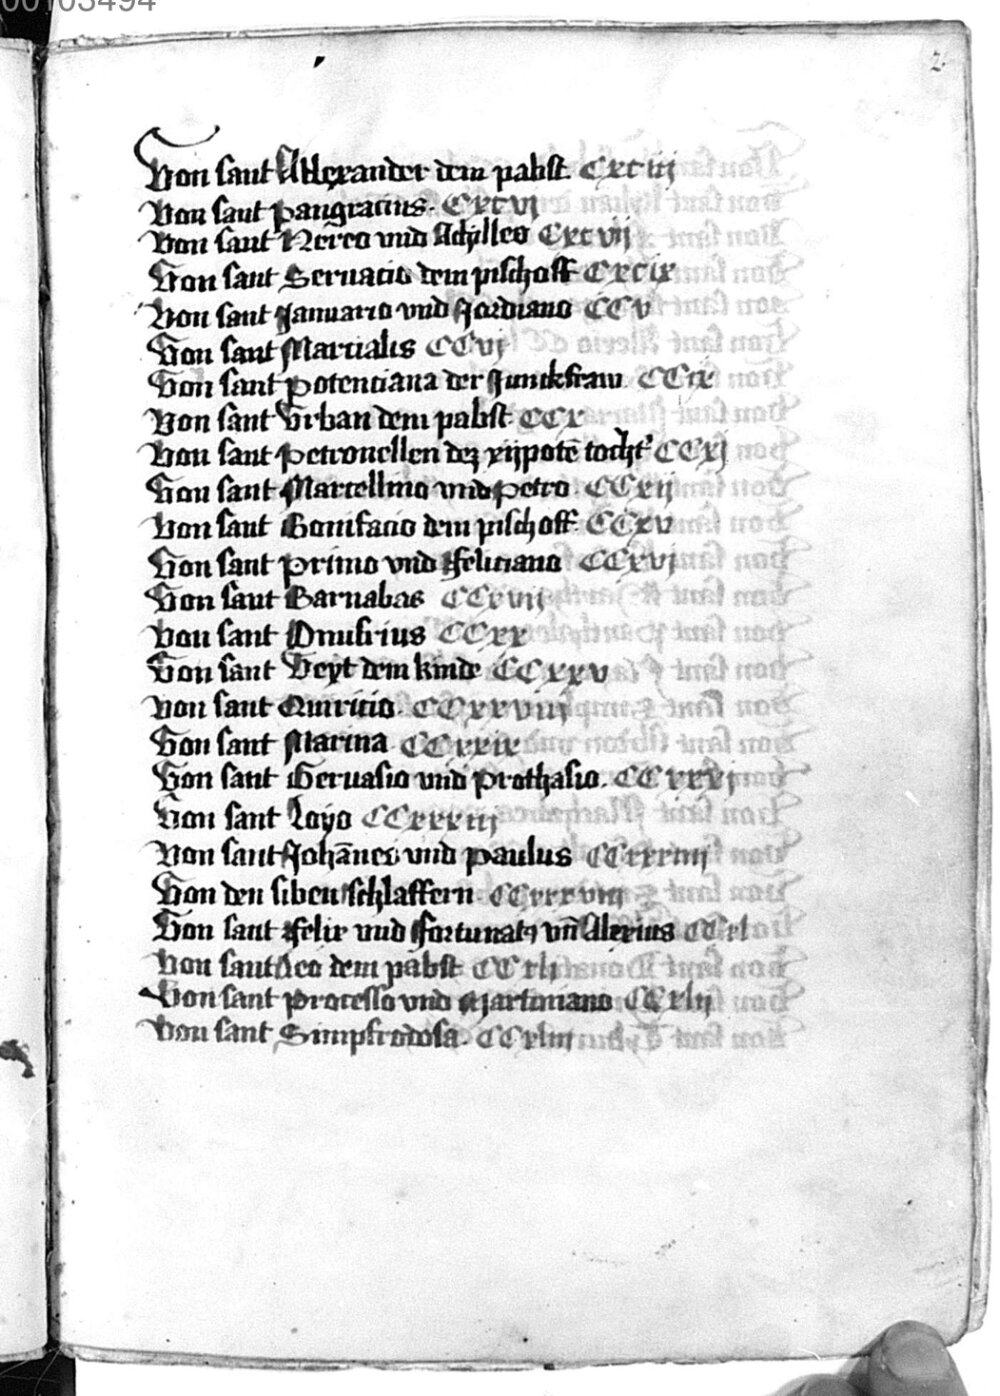 2
Von sant Allexander dem pabst CXCiij
Von sant Pangracius CXCVj
Von sant Nereo vnd Achylleo CXCVij
Von sant Seruacio dem pischoff CXCiX
Von sant Januario vnd Jordiano CCV
Von sant Marcialis CCVj
Von sant Potenciana der Junckfraw CCiX
Von sant Vrban dem pabst CCX
Von sant Petronellen dez xijpotē tocht' CCXj
Von sant Marcellino vnd Petro CCXij
Von sant Bonifacio dem pischoff CCXV
Von sant Primo vnd Feliciano CCXVj
Von sant Barnabas CCXVij
Von sant Onufrius CCXX
Von sant Veyt dem kinde CCXXV
Von sant Quiricio CCXXViij
Von sant Marina CCXXiX
Von sant Geruasio vnd Prothasio CCXXXj
Von sant Loyo CCXXXiij
Von sant Johānes vnd Paulus CCXXXiiij
Von den siben schlaffern CCXXXViij
Von sant Felix vnd Fortunatꝫ vn̄ Alexius CCXl
Von sant Leo dem pabst CCXlj
Von sant Processo vnd Martiniano CCXlij
Von sant Simpfrodosa CCXliij